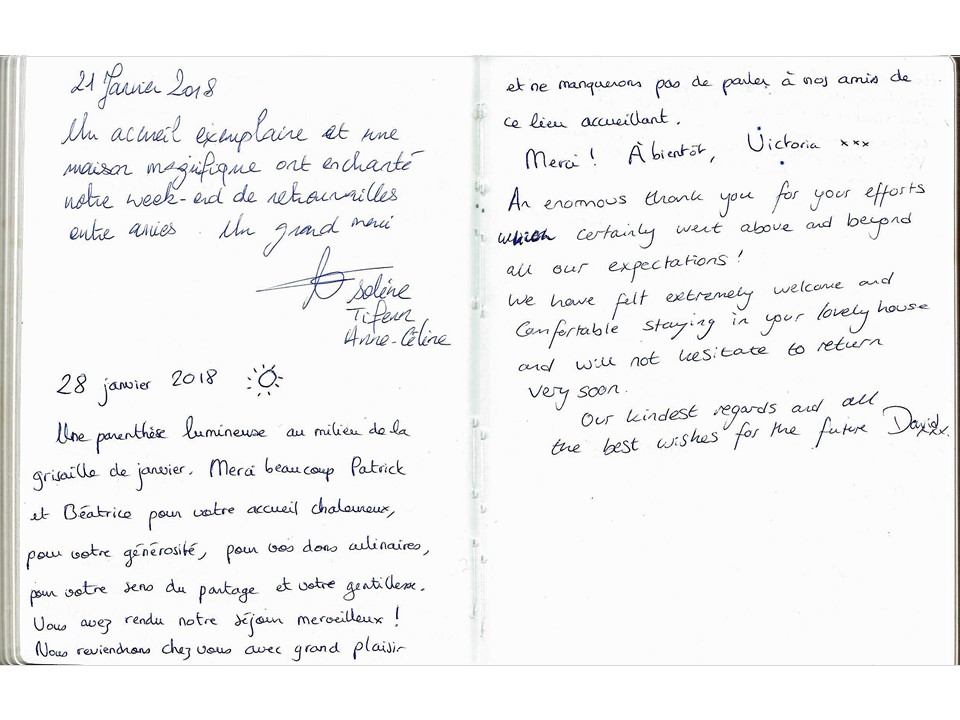 21 Janvier 2018
Un accueil exemplaire et une
maison magnifique ont enchanté
notre week-end de retrouvailles
entre amies. Un grand merci
Solène
Tifenn
Anne-Céline
28 janvier 2018
Une parenthèse lumineuse au milieu de la
grisaille de janvier. Merci beaucoup Patrick
et Béatrice pour votre accueil chaleureux,
pour votre générosité, pour vos dons culinaires,
pour votre sens du partage et votre gentillesse.
Vous avez rendu notre séjour merveilleux !
Nous reviendrons chez vous avec grand plaisir
et ne manquerons pas de parler à nos amis de
ce lieu accueillant.
Merci ! À bientôt, Victoria xxx
An enormous thank you for your efforts
which certainly went above and beyond
all our expectations!
We have felt extremely welcome and
comfortable staying in your lovely house
and will not hesitate to return
very soon.
Our kindest regards and all
the best wishes for the future David xxx.